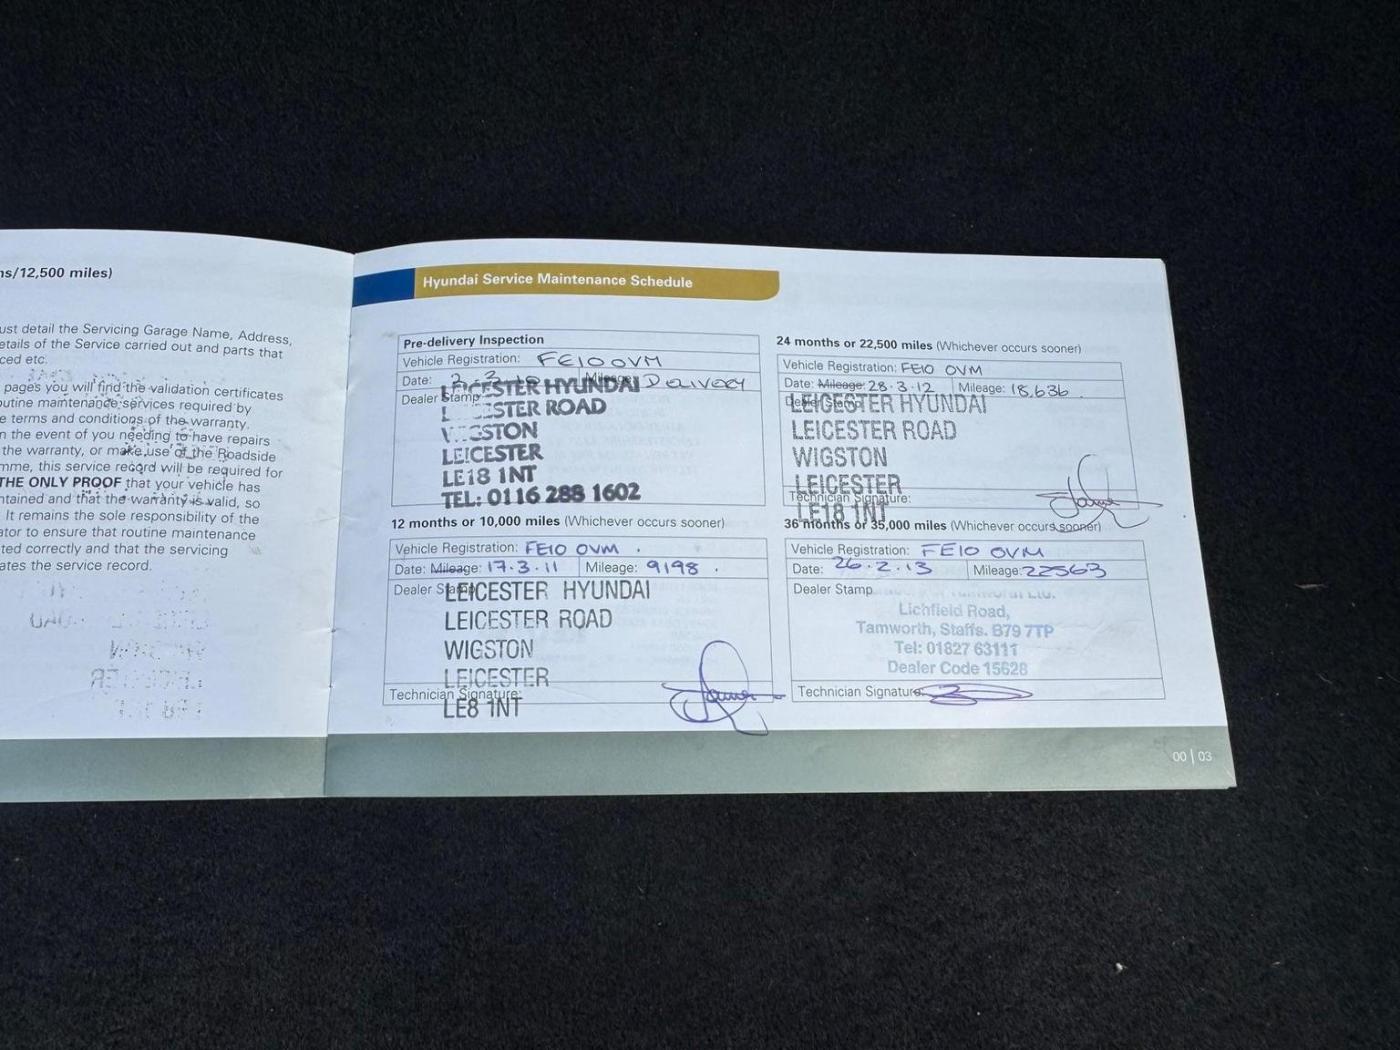 ns/12,500 miles)
ust detail the Servicing Garage Name, Address,
etails of the Service carried out and parts that
ced etc.
pages you will find the validation certificates
outine maintenance services required by
e terms and conditions of the warranty.
n the event of you needing to have repairs
the warranty, or make use of the Roadside
mme, this service record will be required for
THE ONLY PROOF that your vehicle has
ntained and that the warranty is valid, so
It remains the sole responsibility of the
ator to ensure that routine maintenance
ted correctly and that the servicing
ates the service record.
Hyundai Service Maintenance Schedule
Pre-delivery Inspection
Vehicle Registration: FE10 OVM
Date: Mileage: DELIVERY
Dealer Stamp
LEICESTER HYUNDAI
STER ROAD
WIGSTON
LEICESTER
LE18 1NT
TEL: 0116 288 1602
12 months or 10,000 miles (Whichever occurs sooner)
Vehicle Registration: FE10 OVM
Date: Mileage: 17.3.11 Mileage: 9198
Dealer Stamp
LEICESTER HYUNDAI
LEICESTER ROAD
WIGSTON
LEICESTER
Technician Signature:
LE8 1NT
24 months or 22,500 miles (Whichever occurs sooner)
Vehicle Registration: FE10 OVM
Date: Mileage: 28.3.12 Mileage: 18,636
Dealer Stamp
LEICESTER HYUNDAI
LEICESTER ROAD
WIGSTON
LEICESTER
Technician Signature:
LE18 1NT
36 months or 35,000 miles (Whichever occurs sooner)
Vehicle Registration: FE10 OVM
Date: 26.2.13 Mileage: 22563
Dealer Stamp
Lichfield Road,
Tamworth, Staffs. B79 7TP
Tel: 01827 63111
Dealer Code 15628
Technician Signature:
00 | 03